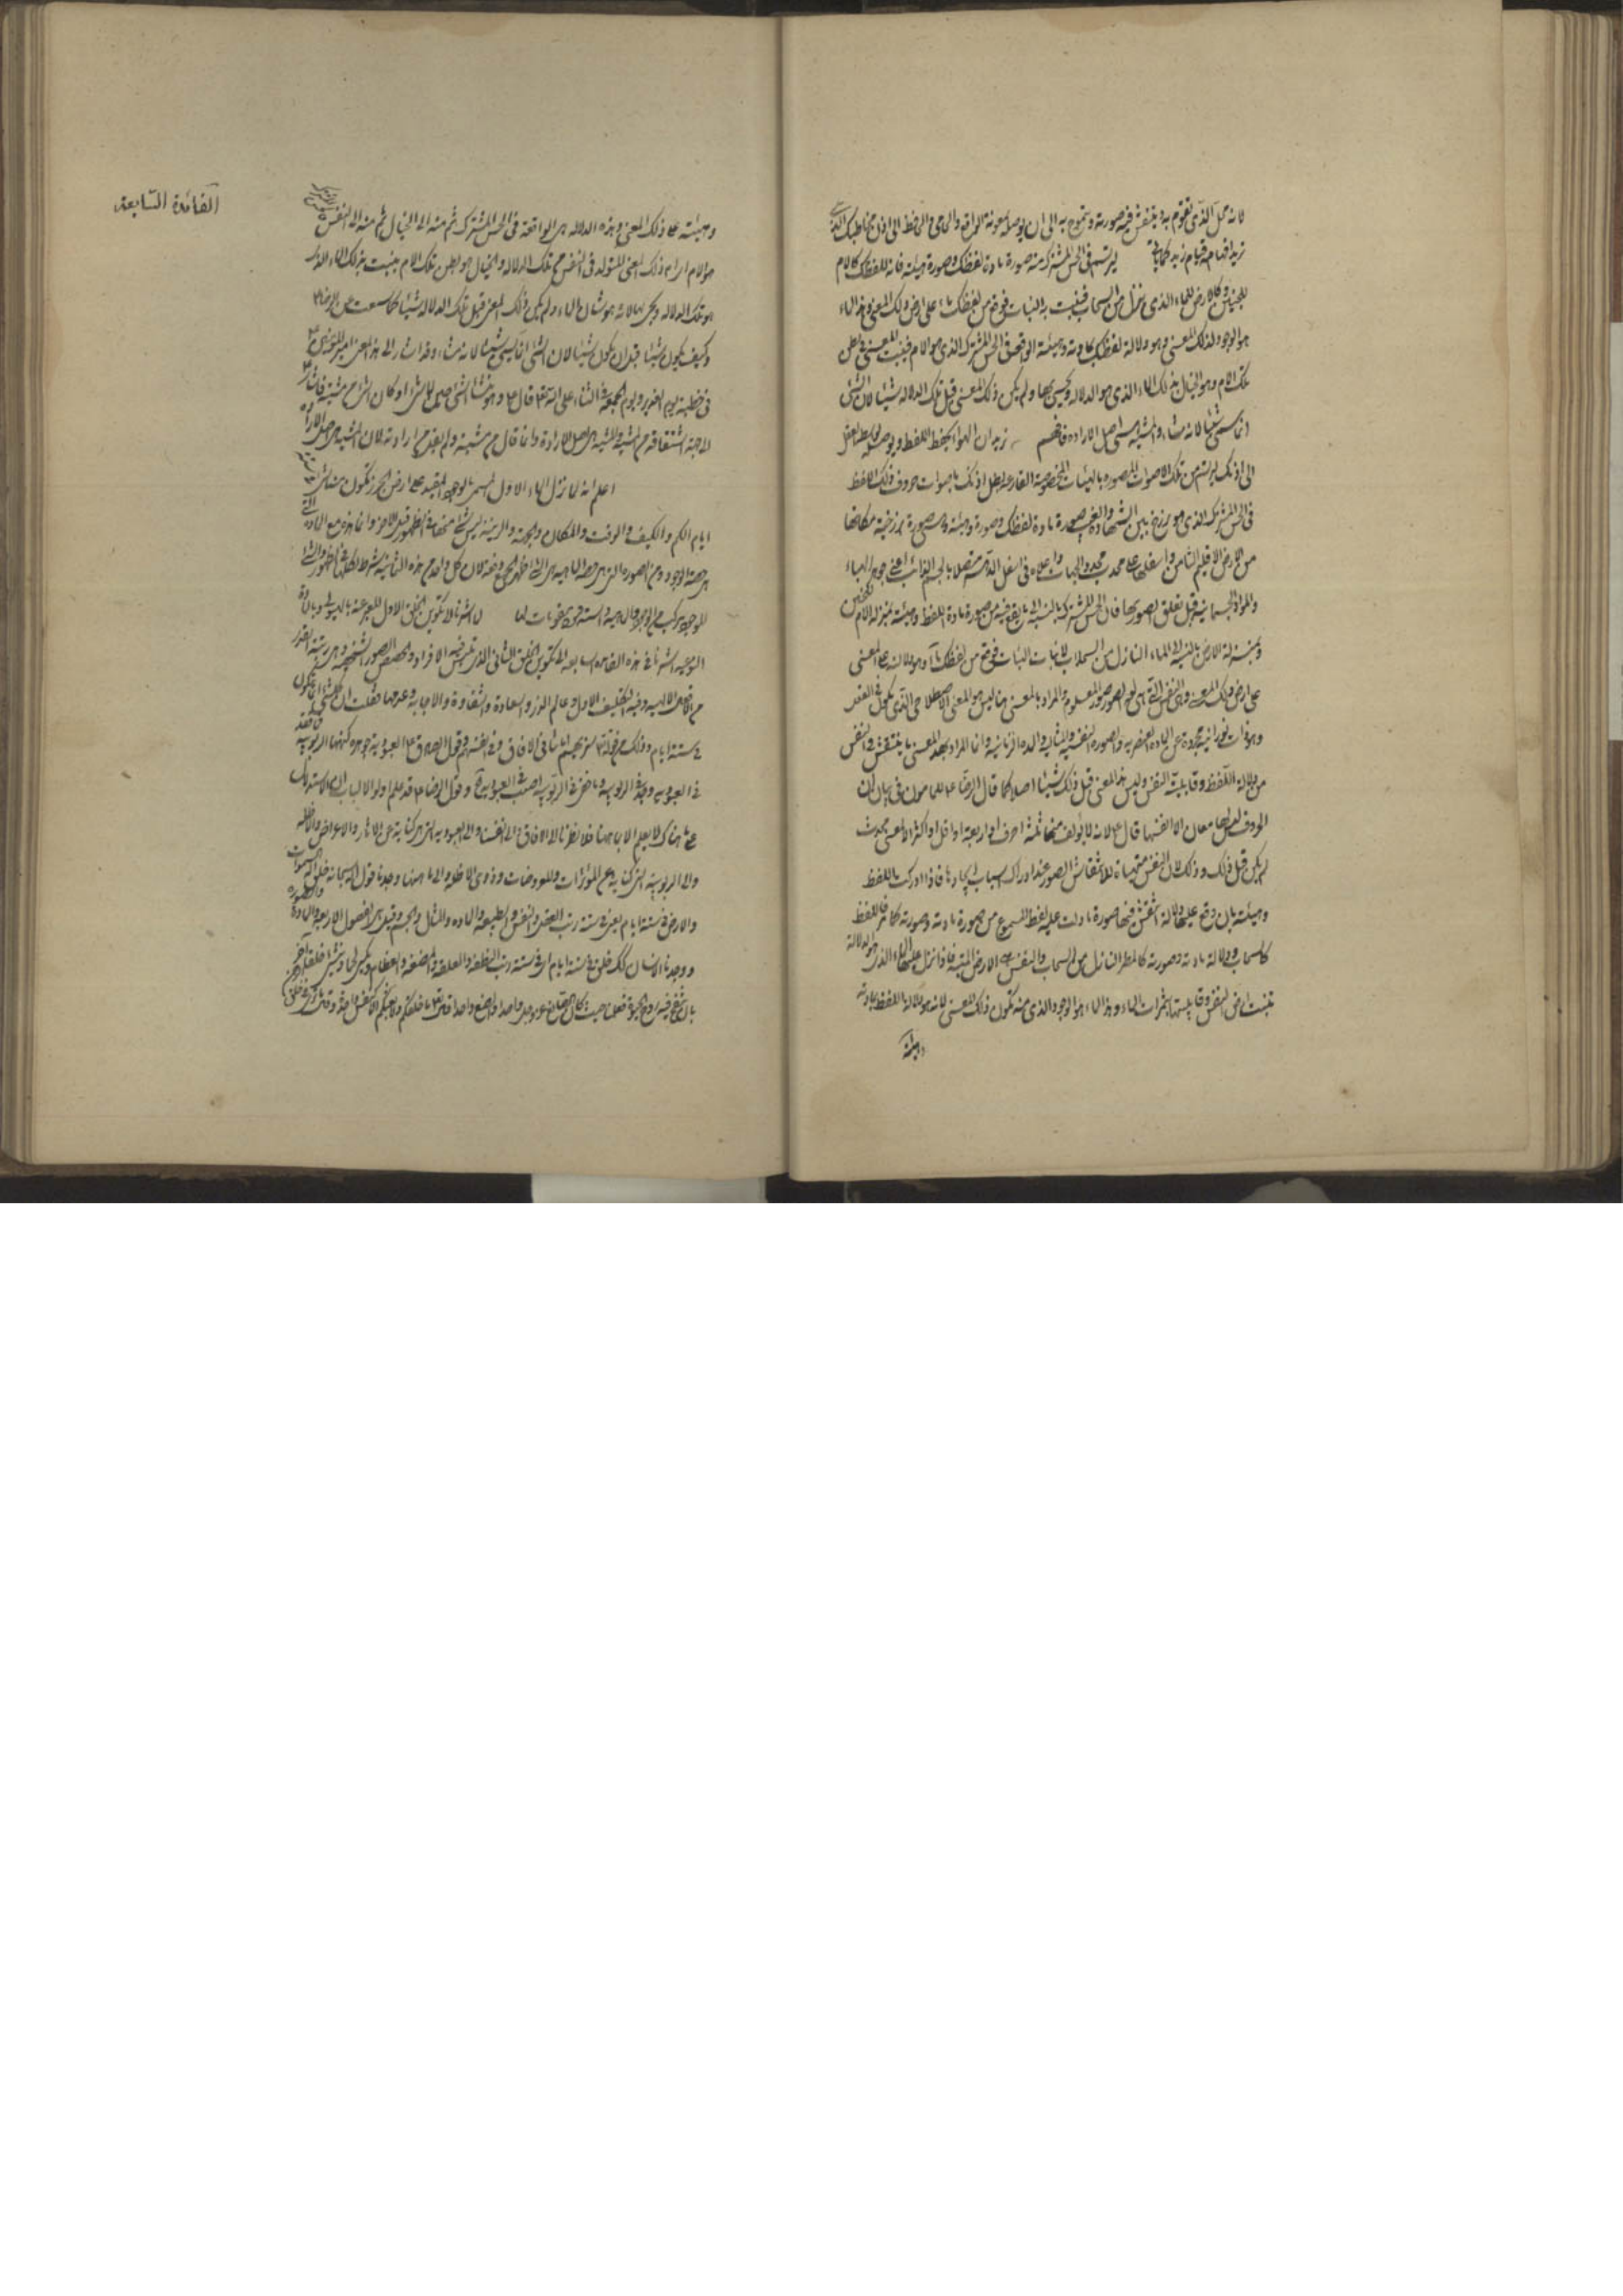 لانه محل الذى تقوم به و ينتقش فيه صورته و يتموج به الى ان يوصله بمعونة الى اذن مخاطبك
زيد قيام زيد ليرتسم فى الحس المشترك منه صورة مادة لفظك و صورة هيئته فانه للفظك كالام
للجنين و كالارض للماء الذى ينزل من السحاب فينبت به النبات فوقع من لفظك ماء على ارض ذلك المعنى و هذا الماء
هو الوجود لذلك المعنى و هو دلالة لفظك بمادته و هيئته الواقعة فى الحس المشترك الذى هو الام فينبت المعنى فى بطن
تلك الام و هو الخيال بذلك الماء الذى هو الدلالة و يحيى بها و لم يكن ذلك المعنى قبل تلك الدلالة شيئا لان الشئ
انما سمى شيئا لانه مشاء و المشية هى اصل الارادة فافهم نريد ان الهواء يحفظ اللفظ و يوصله
الى اذنك ليرتسم من تلك الاصوات المصورة بالهيئات المخصوصة القارعة لطبل اذنك باصوات حروف ذلك اللفظ
فى الحس المشترك الذى هو برزخ بين الشهادة و الغيب صورة مادة لفظك و صورة هيئته هى صورة برزخية مكانها
من الارض الاقليم الثامن و اسفلها على محدب محدد الجهات و اعلاه فى اسفل الدهر متصلا بالجسم الذائب اعنى جوهر الهباء
و المواد الجسمانية قبل تعلق الصور بها فان الحس المشترك بالنسبة الى ما يقع فيه من صورة مادة اللفظ و هيئته بمنزلة الام للجنين
و بمنزلة الارض بالنسبة الى الماء النازل من السحاب لانبات النبات فوقع من لفظك ماء و هو دلالته على المعنى
على ارض ذلك المعنى و هى النفس التى هى لوح الصور المعلوم و المراد بالمعنى هنا ليس هو المعنى الاصطلاحى الذى يكون فى العقل
و هو ذات نورانية مجردة عن المادة العنصرية و الصورة النفسية و المثالية و المدة الزمانية و انما المراد بهذا المعنى ما ينتقش فى النفس
من دلالة اللفظ و قابلية النفس و ليس هذا المعنى قبل ذلك شيئا اصلا كما قال الرضا ع للمامون فى بيان ان
الحروف ليس لها معان الا انفسها قال ع لانه لا يؤلف منها ثلثة احرف او اربعة او اقل او اكثر الا لمعنى محدث
لم يكن قبل ذلك و ذلك لان النفس متهيأة للانتقاش الصور عند ادراك اسباب ايجادها فاذا ادركت اللفظ
و هيئته بان وقع عليها دلالة انتقش فيها صورة ما دلت عليه لفظ المسموع من صورة مادته و صورته كما مر فاللفظ
كالسحاب و دلالة مادته و صورته كالمطر النازل من السحاب و النفس هى الارض الميتة فاذا نزل عليها الماء الذى هو الدلالة
نبتت ارض النفس و قابليتها بثمرات الماء و هذا الماء هو الوجود الذى منه تكون ذلك المعنى لانه هو دلالة اللفظ بمادته
و هيئته
الفائدة السابعة
و هيئته على ذلك المعنى و هذه الدلالة هى الواقعة فى الحس المشترك ثم منه الى الخيال ثم منه الى النفس
هو الام ذلك المعنى المتولد فى النفس من تلك الدلالة و الخيال هو بطن تلك الام ينبت بذلك الماء الذى
هو تلك الدلالة و يحيى بها لانه هو شان الماء و لم يكن ذلك المعنى قبل تلك الدلالة شيئا كما سمعت عن الرضا ع
و كيف يكون شيئا قبل ان يكون شيئا لان الشئ انما سمى شيئا لانه مشاء و قد اشار الى هذا المعنى امير المؤمنين ع
فى خطبة يوم الغدير و يوم الجمعة فى الثناء على الله تعالى قال ع و هو منشئ الشئ حين لا شئ اذ كان الشئ من مشيته فاشار
الى جهة اشتقاقه من المشية و المشية هى اصل الارادة و انما قال من مشيته و لم يقل من ارادته لان المشية هى اصل الارادة
اعلم انه لما نزل الماء الاول المسمى بالوجود المقيد على ارض الجرز تكون منهما الشئ فى ستة
ايام الكم و الكيف و الوقت و المكان و الجهة و الرتبة ليس شئ منها فى الظهور قبل الاخر و انما هذه مع المادة التى
هى حصة الوجود و مع الصورة التى هى حصة الماهية هى الشئ اظهر الجميع دفعة لان كل واحد من هذه الثمانية شرط لكلها فى الظهور و الشئ
الموجود مركب من الوجود و الماهية و الستة لما اشرنا الى تكوين الخلق الاول المعبر عنه بالهيولى و بالمادة
النوعية اشرنا فى هذه الفائدة السابعة الى تكوين الخلق الثانى الذى تميز فيه الافراد و تخصص الصور الشخصية و هى رتبة القدر
من الافعال الالهية و فيه التكليف الاول و عالم الذر و السعادة و الشقاوة و الاجابة و عدمها فقلت ان كل شئ انما يكون
فى ستة ايام و ذلك من قوله تعالى سنريهم اياتنا فى الافاق و فى انفسهم و قول الصادق ع العبودية جوهرة كنهها الربوبية فما فقد
فى العبودية وجد فى الربوبية و ما خفى فى الربوبية اصيب فى العبودية و قول الرضا ع قد علم اولوا الالباب ان الاستدلال
على ما هناك لا يعلم الا بما ههنا فلما نظرنا الى الافاق و الى انفسنا و الى العبودية التى هى كناية عن الاثار و الاعراض و الاظلة
و الى الربوبية التى كناية عن المؤثرات و المعروضات و ذوى الاظلة و الى ما ههنا وجدنا قول الله سبحانه خلق السموات
و الارض فى ستة ايام يعنى فى ستة رتب العقل و النفس و الطبيعة و المادة و المثال و الجسم و قيل هى الفصول الاربعة و المادة و الصورة
و وجدنا الانسان كذلك خلق فى ستة ايام اى فى ستة رتب النطفة و العلقة و المضغة و العظام و يكسى لحما و ينشئ خلقا اخر
بان ينفخ فيه روح الحيوة فعلمنا حيث كان الصانع عز و جل واحدا و الصنع واحدا و قال تعالى ما خلقكم و لا بعثكم الا كنفس واحدة و قال ما ترى فى خلق